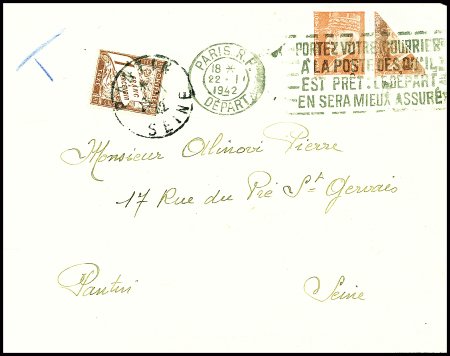 T
PARIS R.P.
18 *
22 - 1
1942
DÉPART
PORTEZ VOTRE COURRIER
A LA POSTE DÈS QU'IL
EST PRÊT, LE DÉPART
EN SERA MIEUX ASSURÉ
SEINE
Monsieur Alinovi Pierre
17 Rue du Pré St Gervais
Pantin
Seine